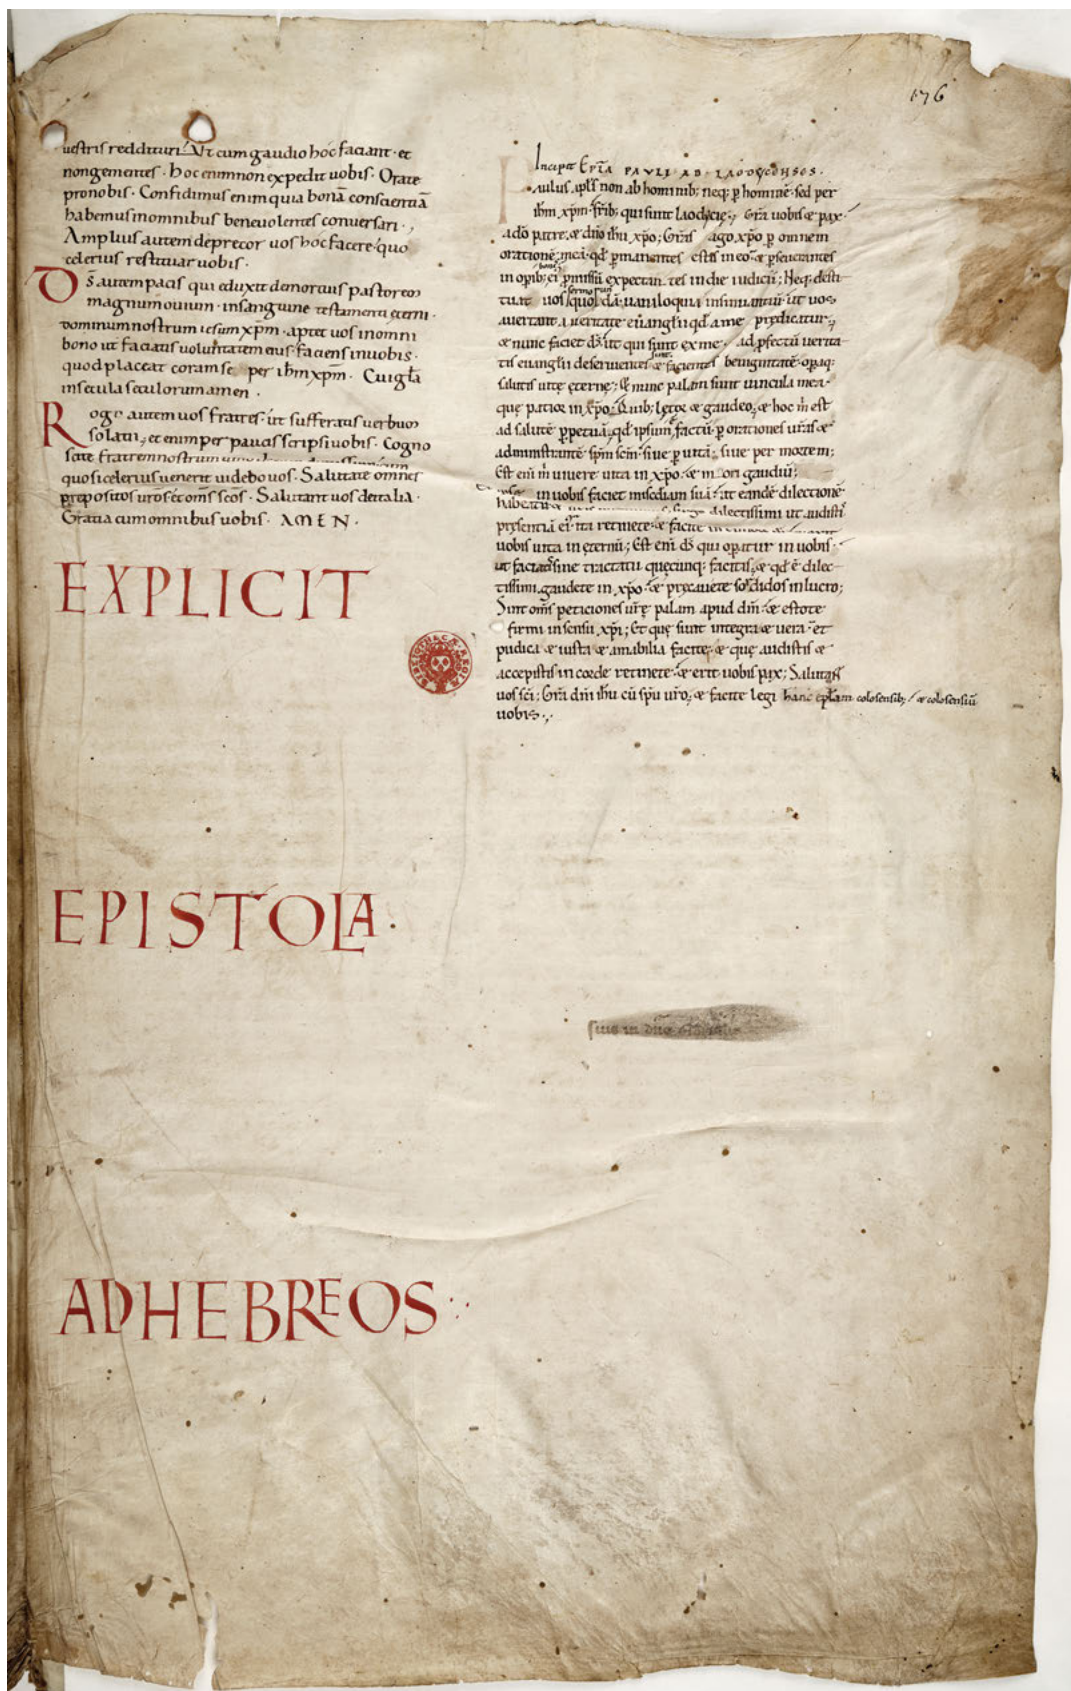 176
uestris reddituri. Ut cum gaudio hoc faciant. et
non gementes. hoc enim non expedit uobis. Orate
pro nobis. Confidimus enim quia bonā conscientiā
habemus in omnibus beneuolentes conuersari.,
Amplius autem deprecor uos hoc facere. quo
celerius restituar uobis.
Ds̄ autem pacis qui eduxit de mortuis pastorem
magnum ouium. in sanguine testamenti ęterni.
dominum nostrum iesum xp̄m. aptet uos in omni
bono ut faciatis uoluntatem eius. faciens in uobis.
quod placeat coram se per ih̄m xp̄m. Cui gl̄a
in secula seculorum amen.
Rogo autem uos fratres. ut sufferatis uerbum
solatii, et enim per paucis scripsi uobis. Cogno
scite fratrem nostrum
quo si celerius uenerit uidebo uos. Salutate omnes
prepositos ur̄os et om̄s sc̄os. Salutant uos de italia.
Gratia cum omnibus uobis. AMEN.
EXPLICIT
EPISTOLA.
AD HEBREOS
Incipit Epīa PAVLI AD LAODYCENSES.
Paulus apl̄s non ab hominib; neq; ꝑ hominē. sed per
ih̄m xp̄m. fr̄ib; qui sunt laodycię; Gr̄a uobis & pax.
a dō patre. & dn̄o ih̄u xp̄o; Gr̄as ago xp̄o ꝑ omnem
orationē meā. qd̄ ꝑmanentes estis in eo. & ꝑseuerantes
in opib; ei ꝑmissū expectantes in die iudicii; Neq; desti
tuat uos quoꝝdā uaniloquia insinuantiū. ut uos
auertant a ueritate euanglii qd̄ a me predicatur;
& nunc faciet ds̄. ut qui sunt ex me. ad ꝓfectū uerita
tis euanglii deseruientes & facientes benignitatē. operaq;
salutis uitę ęternę; Et nunc palam sunt uincula mea.
quę patior in xp̄o. Quib; lętor & gaudeo; & hoc m̄ est
ad salutē ꝑpetuā. qd̄ ipsum factū ꝑ orationes ur̄as &
administrantē sp̄m sc̄m. siue ꝑ uitā; siue per mortem;
Est eni m̄ uiuere uita in xp̄o. & mori gaudiū;
in uobis faciet misc̄diam suā. ut eandē dilectionē
habeatis dilectissimi ut audistis
presentiā ei. ita retinete. & facite
uobis uita in ęternū; Est eni ds̄ qui operatur in uobis.
ut faciatis sine tractatu quęcunq; facitis. & qd̄ ē dilec
tissimi gaudete in xp̄o. & precauete sordidos in lucro;
Sint om̄s peticiones ur̄ę palam apud dm̄. & estote
firmi in sensu xp̄i; Et quę sunt integra & uera. et
pudica & iusta & amabilia facite. & quę audistis &
accepistis in corde retinete. & erit uobis pax; Salutant
uos sc̄i; Gr̄a dn̄i ih̄u cū sp̄u ur̄o; & facite legi hanc epl̄am colosensib; & colosensiū
uobis.,
suis in